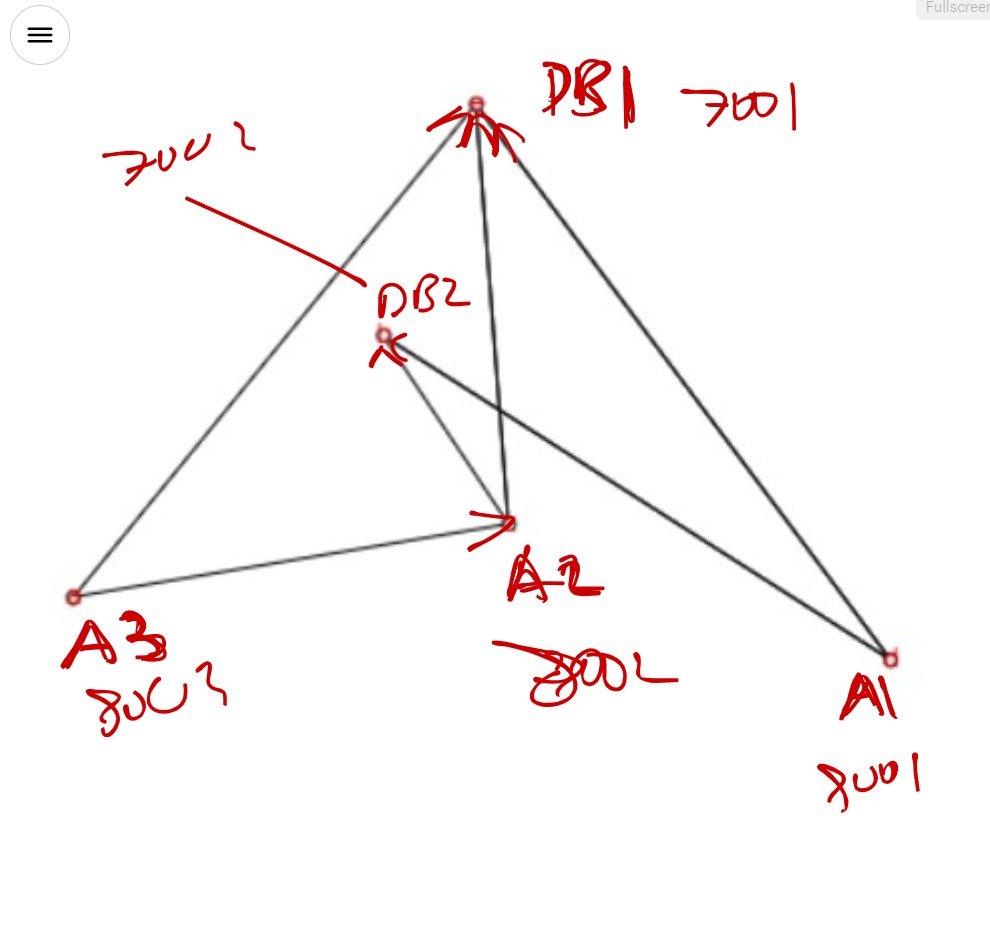 Fullscreen
DB1 7001
7002
DB2
A2
8002
A3
8003
A1
8001